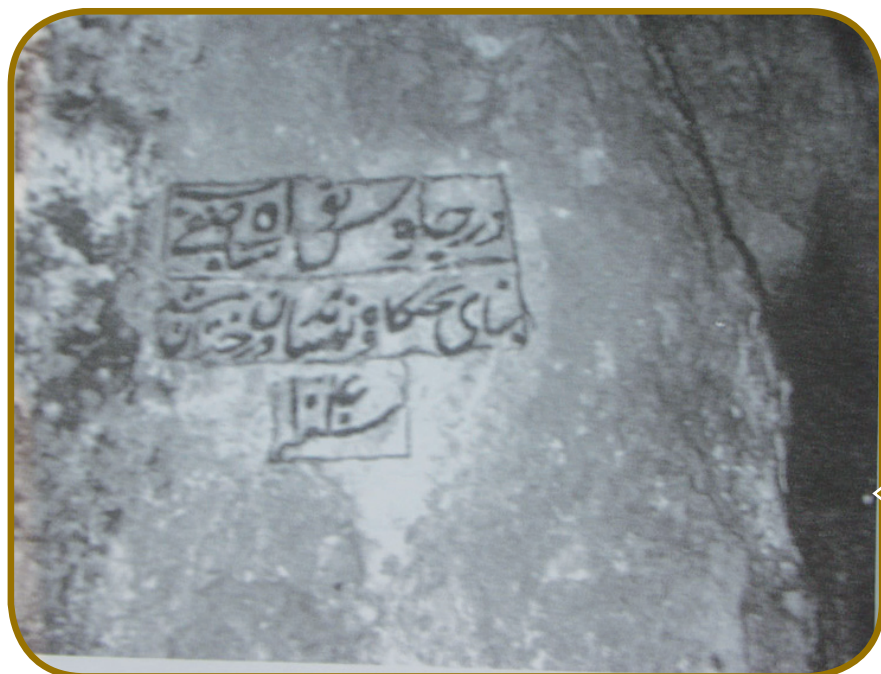 در جلوس نو شاه صفی
بنای و نشاندن درختان شد
سنه ۱۰۴